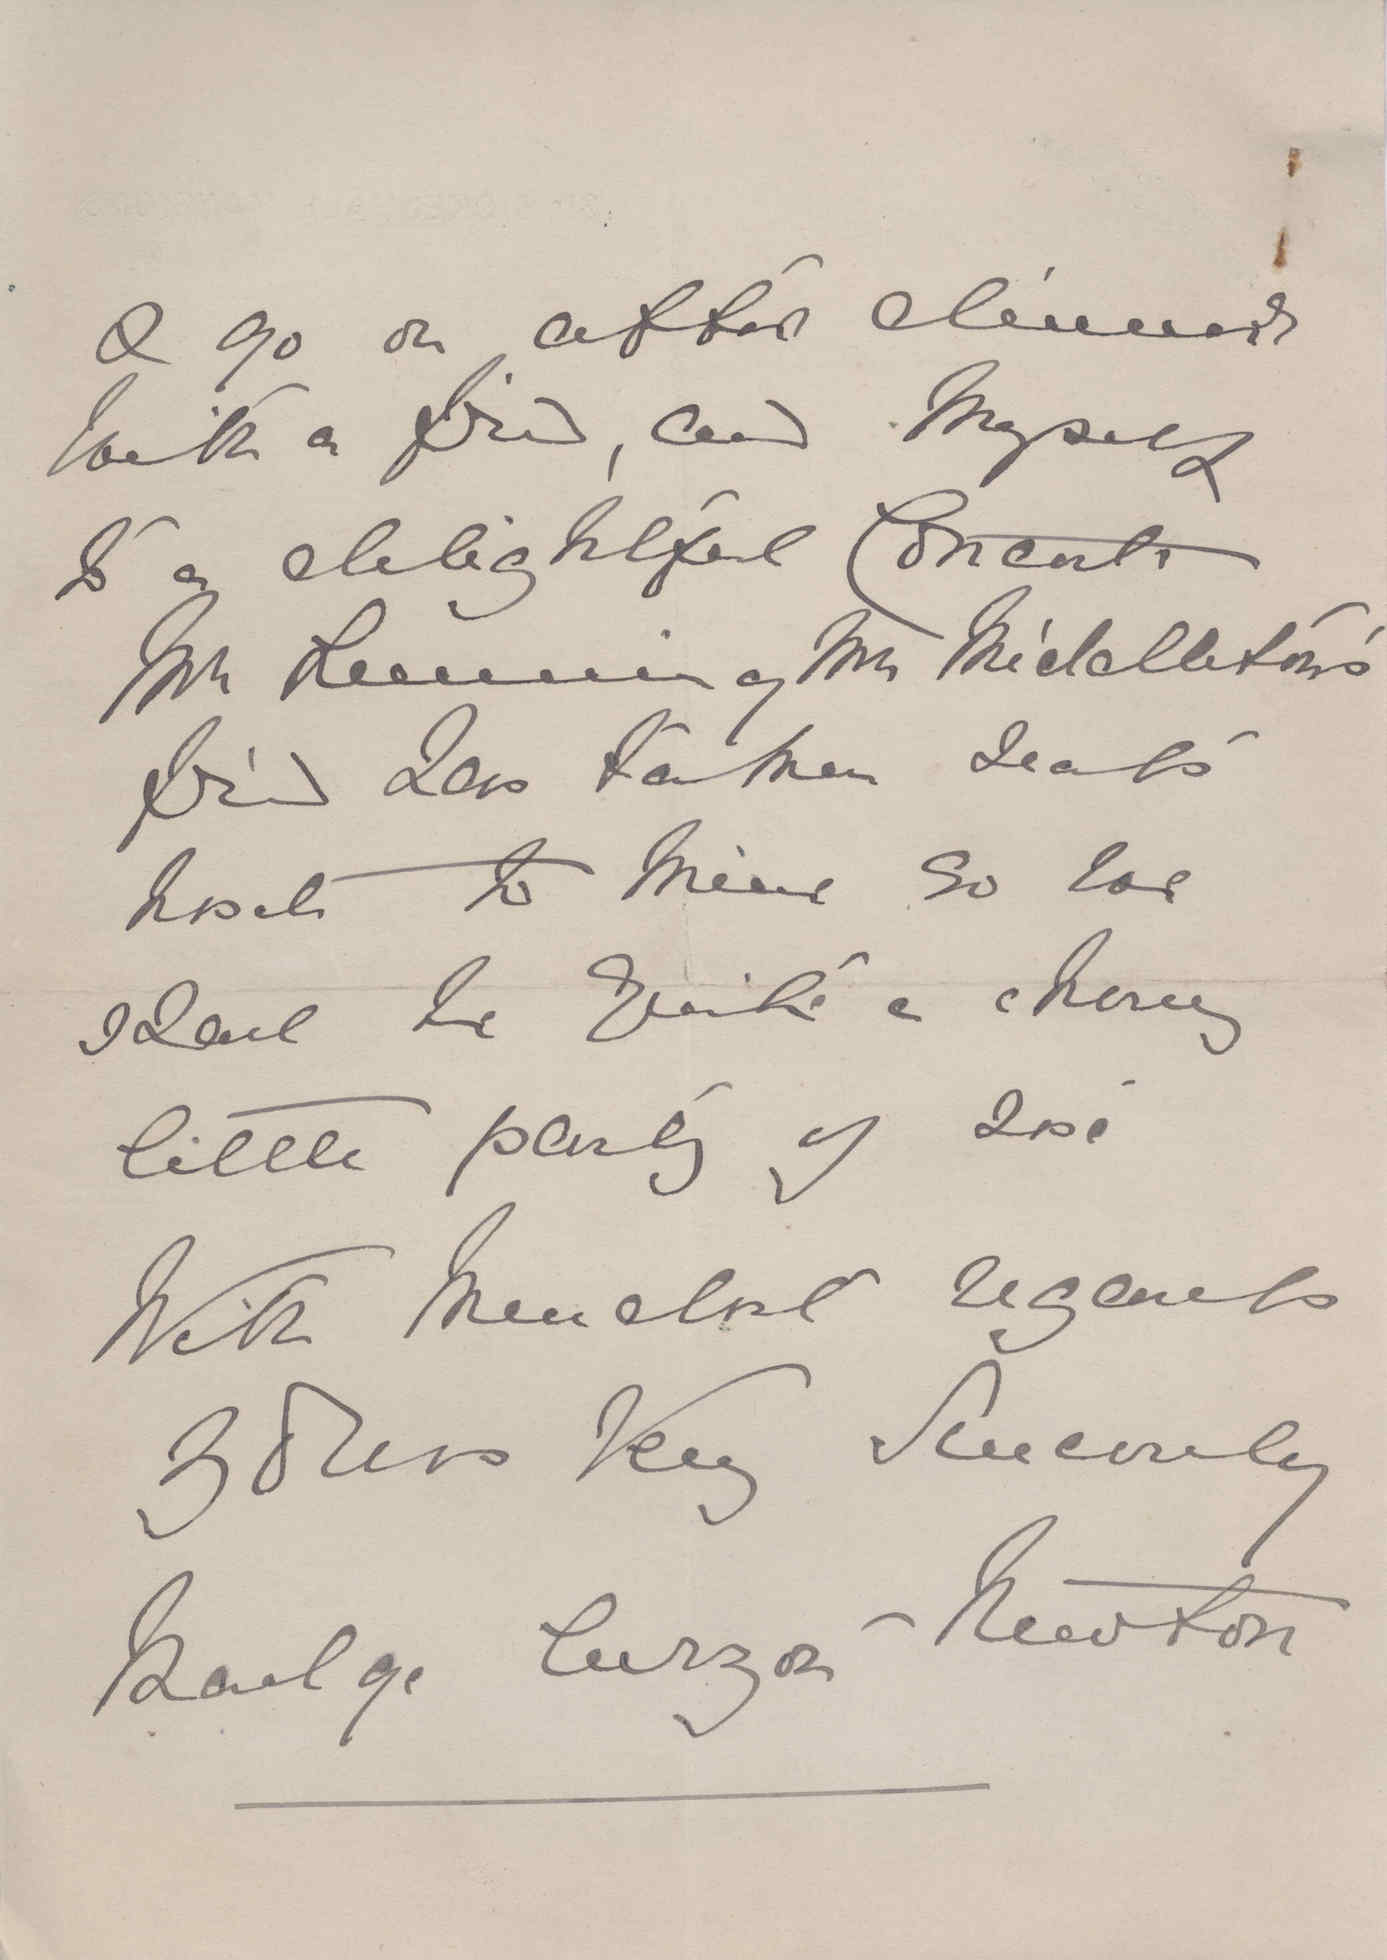 & go on after dinner
with a friend, and myself
to a delightful Concert
Mr Leeming Mr Middleton's
friend has taken seats
next to mine so we
shall be quite a cheery
little party of six
With kindest regards
Yours Very Sincerely
Madge Curzon-Newton